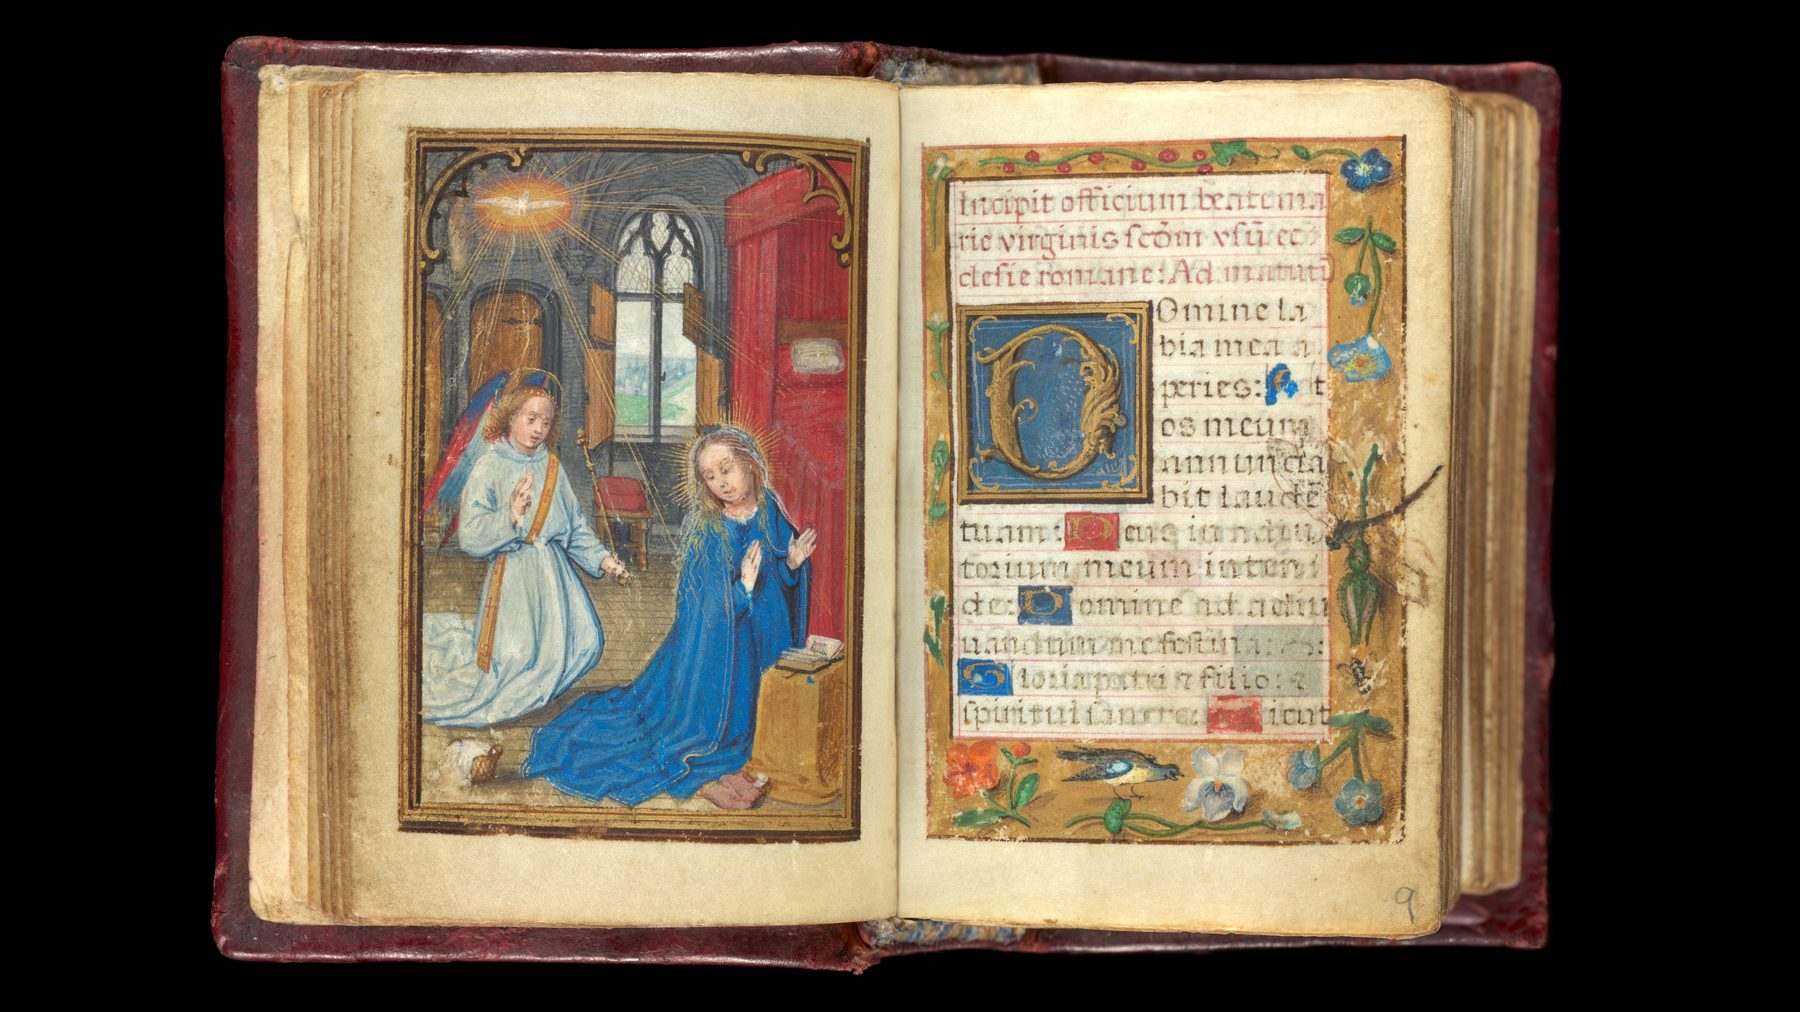 Incipit officium beate ma
rie virginis scd̄m vsū ec
clesie romane: Ad matuti
Domine la
bia mea a
peries: Et
os meum
annuncia
bit laudē
tuam: Deus in adiu
torium meum inten
de: Domine ad adiu
uandum me festina:
Gloria patri et filio: et
spiritui sancto: Sicut
9